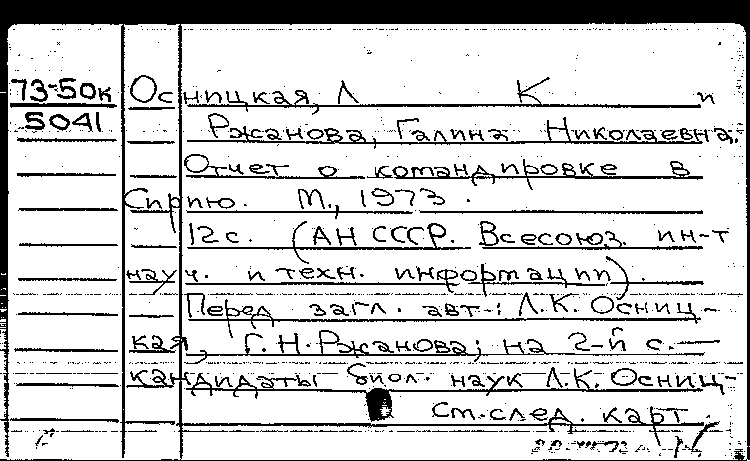 73-50к Осницкая, Л К и
5041 Ржанова, Галина Николаевна.
Отчет о командировке в
Сирию. М., 1973.
12 с. (АН СССР. Всесоюз. ин-т
науч. и техн. информации).
Перед загл. авт.: Л.К. Осниц-
кая, Г.Н. Ржанова; на 2-й с.—
кандидаты биол. наук Л.К. Осниц-
см. след. карт.